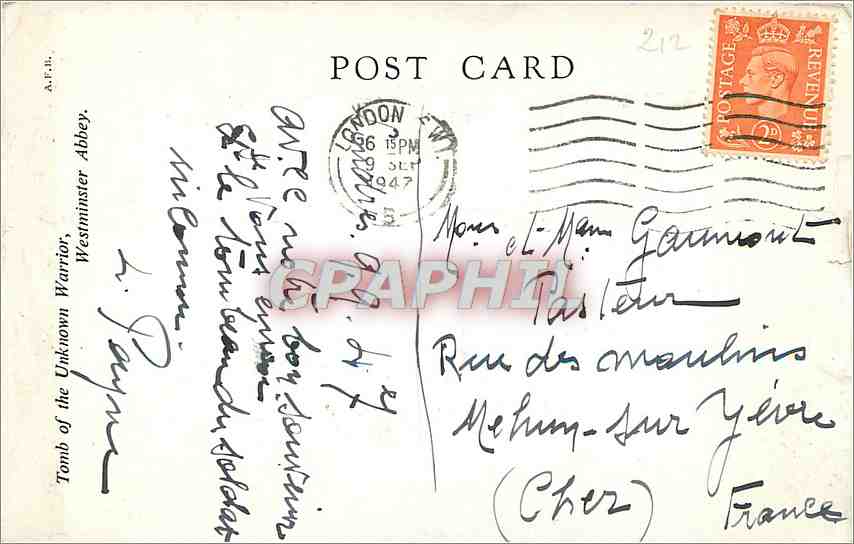 POST CARD
212
POSTAGE
REVENUE
2D
LONDON SW1
6 15 PM
9 SEP
1947
A.F.B.
Tomb of the Unknown Warrior,
Westminster Abbey.
Londres. 9.9.47
Avec notre bon souvenir
vous envoie
le tombeau du soldat
inconnu.
L. Payne
CPARHIL
Mons et Mame Gaumont
Pasteur
Rue des Moulins
Mehun-sur-Yèvre
(Cher)
France